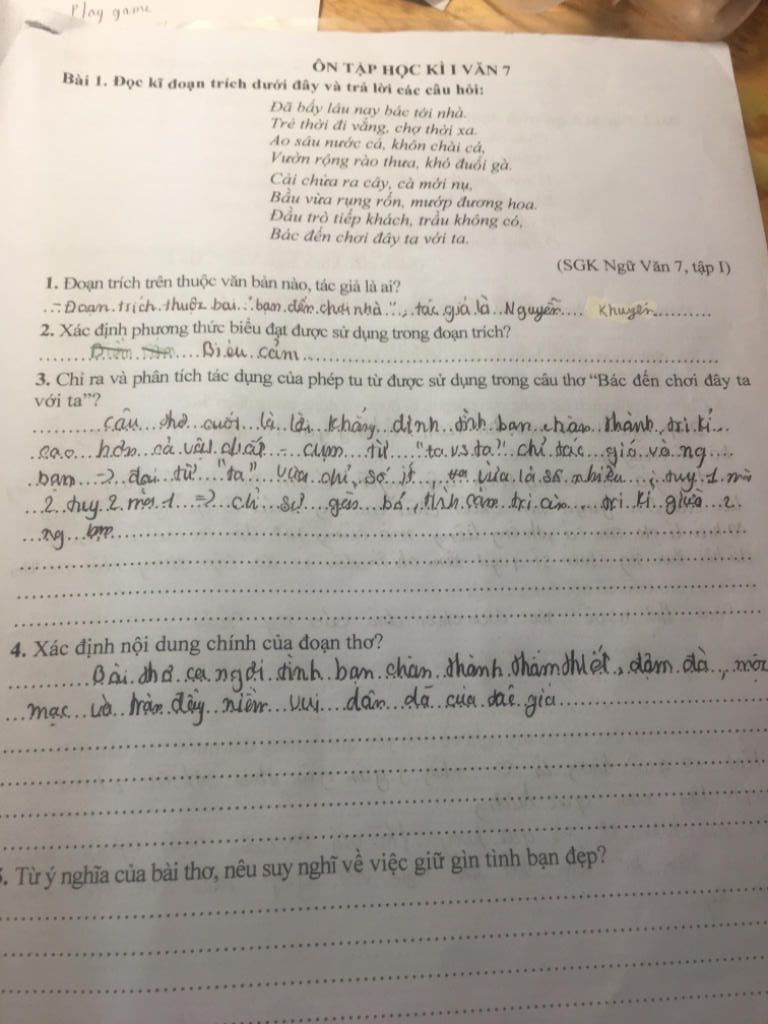 Play game
ÔN TẬP HỌC KÌ I VĂN 7
Bài 1. Đọc kĩ đoạn trích dưới đây và trả lời các câu hỏi:
Đã bấy lâu nay bác tới nhà.
Trẻ thời đi vắng, chợ thời xa.
Ao sâu nước cả, khôn chài cá,
Vườn rộng rào thưa, khó đuổi gà.
Cải chửa ra cây, cà mới nụ,
Bầu vừa rụng rốn, mướp đương hoa.
Đầu trò tiếp khách, trầu không có,
Bác đến chơi đây ta với ta.
(SGK Ngữ Văn 7, tập I)
1. Đoạn trích trên thuộc văn bản nào, tác giả là ai?
- Đoạn trích thuộc bài : "bạn đến chơi nhà", tác giả là Nguyễn Khuyến
2. Xác định phương thức biểu đạt được sử dụng trong đoạn trích?
Biểu cảm
3. Chỉ ra và phân tích tác dụng của phép tu từ được sử dụng trong câu thơ “Bác đến chơi đây ta
với ta”?
Câu thơ cuối là lời khẳng định tình bạn chân thành, tri kỉ
cao hơn cả vật chất - cụm từ "ta v s ta" chỉ tác giả và ng
bạn => đại từ "ta" vừa chỉ số ít, vừa là số nhiều ; tuy 1 mà
2 tuy 2 mà 1 => chỉ sự gắn bó, tình cảm tri âm tri kỉ giữa 2
ng bạn
4. Xác định nội dung chính của đoạn thơ?
Bài thơ ca ngợi tình bạn chân thành thắm thiết, đậm đà, mộc
mạc và tràn đầy niềm vui dân dã của tác giả
5. Từ ý nghĩa của bài thơ, nêu suy nghĩ về việc giữ gìn tình bạn đẹp?